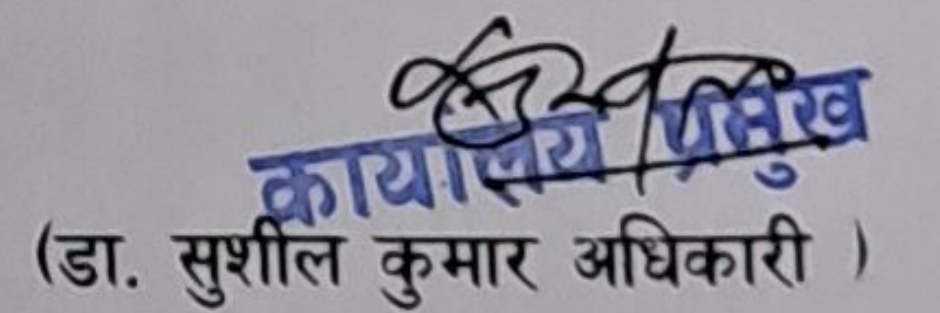 कार्यालय प्रमुख
(डा. सुशील कुमार अधिकारी )